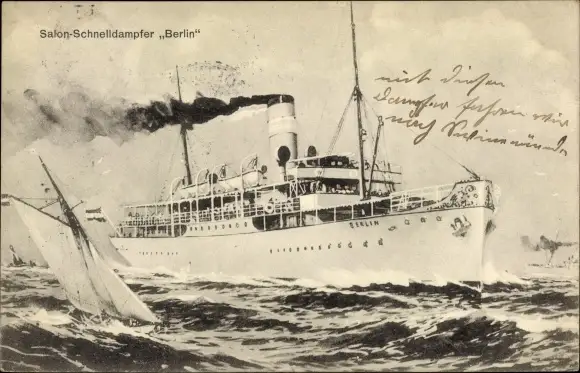 Salon-Schnelldampfer „Berlin"
mit diesem
Dampfer fahren wir
nach Swinemünde
BERLIN